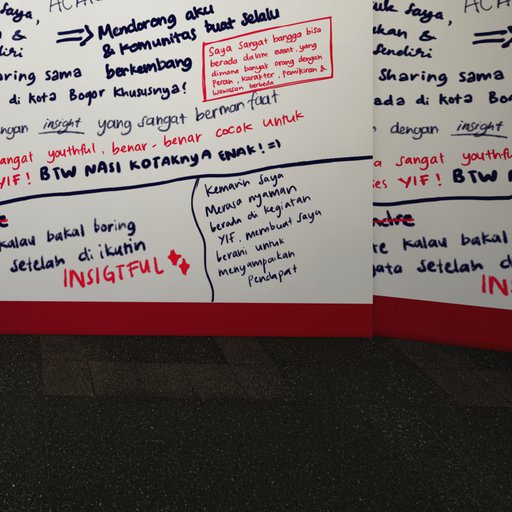 Saya,
ACA
n &
diri
=> Mendorong aku
& komunitas buat selalu
berkembang
Saya sangat bangga bisa
berada dalam event yang
dimana banyak orang dengan
Peran, karakter, pemikiran &
Wawasan berbeda
aring sama
di kota Bogor khususnya!
engan insight yang sangat bermanfaat
angat youthful, benar-benar cocok untuk
YIF! BTW NASI KOTAKNYA ENAK! =)
kalau bakal boring
setelah di ikutin
INSIGTFUL
Kemarin saya
Merasa nyaman
berada di kegiatan
YIF, membuat saya
berani untuk
menyampaikan
Pendapat
uk Saya,
ACA
kan &
endiri
Sharing sama
ada di kota Bo
dengan insight
a sangat youthfu
es YIF! BTW N
te kalau bakal
ata setelah d
INS